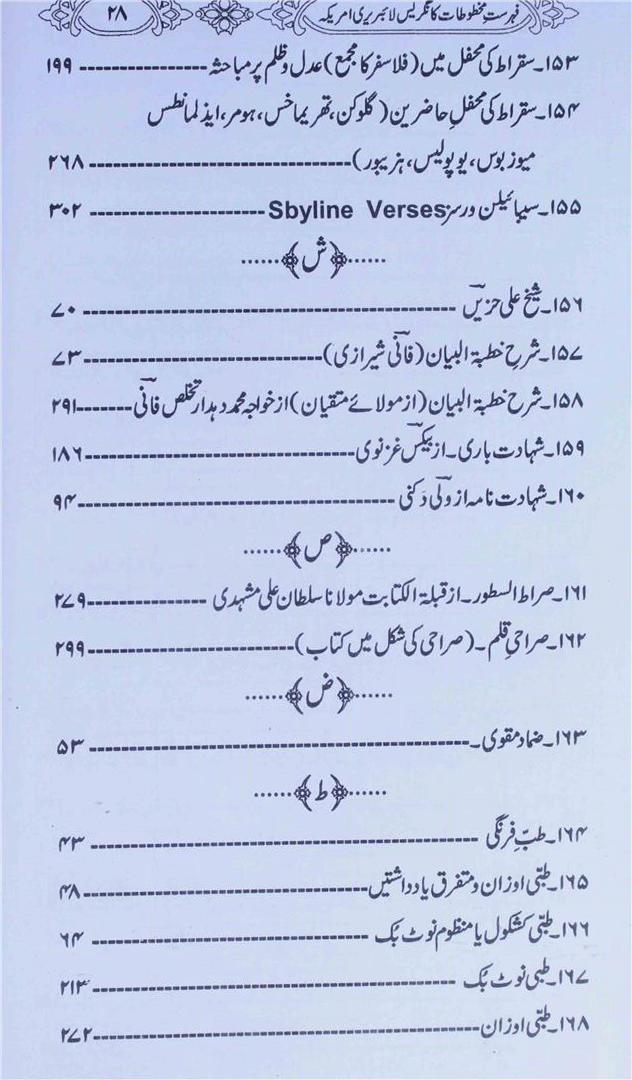 فہرستِ مخطوطات کانگریس لائبریری امریکہ ۲۸
۱۵۳۔سقراط کی محفل میں (فلاسفر کا مجمع) عدل و ظلم پر مباحثہ ---------------- ۱۹۹
۱۵۴۔سقراط کی محفلِ حاضرین (گلوکن، تھریماخس، ہومر، ایذلمانطس
میوزیوس، یوپولیس، ہزیبور)-------------------------------- ۲۶۸
۱۵۵۔سیبائیلن ورسزSbyline Verses ---------------------- ۳۰۲
......﴿ش﴾......
۱۵۶۔شیخ علی حزیںؔ ---------------------------------------------- ۷۰
۱۵۷۔شرحِ خطبۃ البیان (فانیؔ شیرازی)------------------------------ ۷۳
۱۵۸۔شرح خطبۃ البیان (از مولائے متقیان) از خواجہ محمد دہدار تخلص فانیؔ-------۲۹۱
۱۵۹۔شہادت باری۔از بیکسؔ غزنوی----------------------------------۱۸۶
۱۶۰۔شہادت نامہ از ولیؔ دَکنی ---------------------------------------- ۹۴
......﴿ص﴾......
۱۶۱۔صراط السطور۔از قبلۃ الکتابت مولانا سلطان علی مشہدی ---------------۲۷۹
۱۶۲۔صراحیِ قلم۔(صراحی کی شکل میں کتاب)--------------------------۲۹۹
......﴿ض﴾......
۱۶۳۔ضماد مقوی۔------------------------------------------------ ۵۳
......﴿ط﴾......
۱۶۴۔طبِّ فرنگی ------------------------------------------------ ۴۳
۱۶۵۔طبّی اوزان و متفرق یادداشتیں------------------------------------۴۸
۱۶۶۔طبّی کشکول یا منظوم نوٹ بُک ----------------------------------- ۶۴
۱۶۷۔طبی نوٹ بُک --------------------------------------------- ۲۱۳
۱۶۸۔طبّی اوزان------------------------------------------------۲۷۲